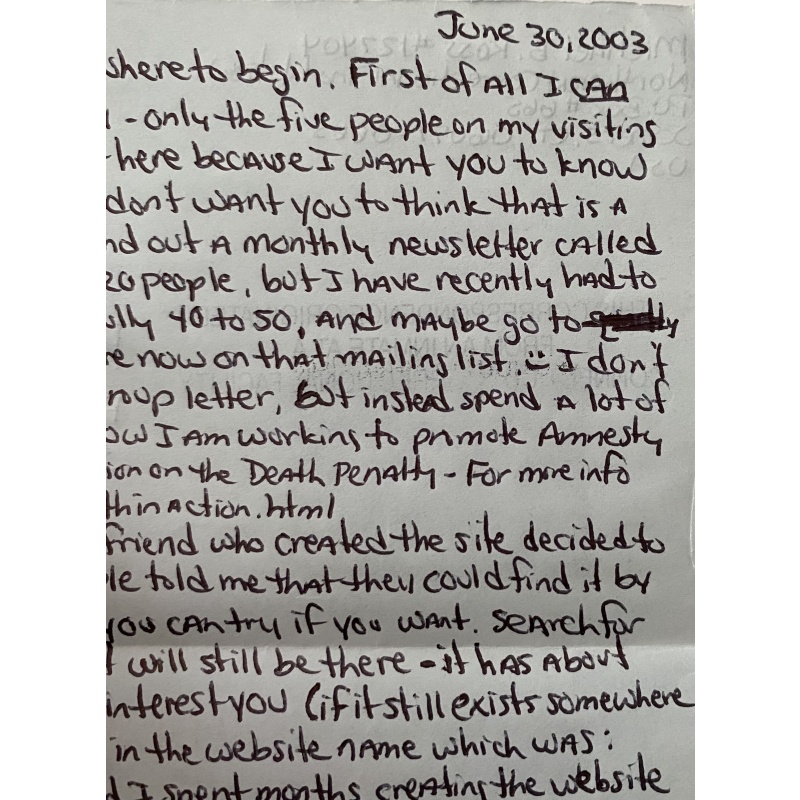 June 30, 2003
where to begin. First of All I can
- only the five people on my visiting
here because I want you to know
don't want you to think that is a
nd out a monthly newsletter called
20 people, but I have recently had to
lly 40 to 50, and maybe go to
e now on that mailing list. I don't
roup letter, but instead spend a lot of
ow I am working to promote Amnesty
ion on the Death Penalty - For more info
thinaction.html
friend who created the site decided to
le told me that they could find it by
you can try if you want. Search for
I will still be there - it has about
interest you (if it still exists somewhere
in the website name which was:
d I spent months creating the website